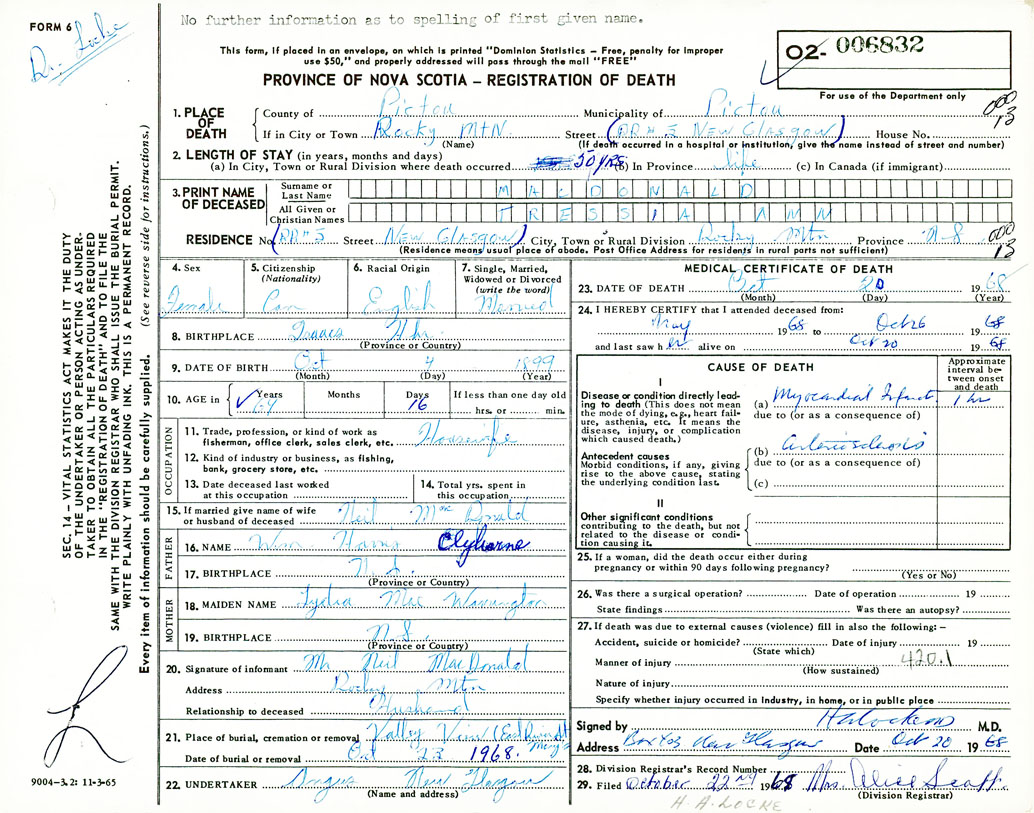 No further information as to spelling of first given name.
FORM 6
Dr. Locke
This form, if placed in an envelope, on which is printed "Dominion Statistics – Free, penalty for improper
use $50," and properly addressed will pass through the mail "FREE"
PROVINCE OF NOVA SCOTIA – REGISTRATION OF DEATH
02- 006832
For use of the Department only
000
13
1. PLACE OF DEATH
County of Pictou Municipality of Pictou
If in City or Town Rocky Mtn. Street (RR#5 New Glasgow) House No.
(Name) (If death occurred in a hospital or institution, give the name instead of street and number)
2. LENGTH OF STAY (in years, months and days)
(a) In City, Town or Rural Division where death occurred 50 yrs (b) In Province life (c) In Canada (if immigrant)
3. PRINT NAME OF DECEASED
Surname or Last Name MACDONALD
All Given or Christian Names TRESSIA ANN
RESIDENCE No. (RR#5 Street New Glasgow) City, Town or Rural Division Rocky Mtn Province N-S
(Residence means usual place of abode. Post Office Address for residents in rural parts not sufficient)
000
13
4. Sex Female
5. Citizenship (Nationality) Can
6. Racial Origin English
7. Single, Married, Widowed or Divorced (write the word) Married
8. BIRTHPLACE Isaacs Hbr.
(Province or Country)
9. DATE OF BIRTH Oct 4 1899
(Month) (Day) (Year)
10. AGE in Years 69 Months Days 16 If less than one day old
hrs. or min.
OCCUPATION
11. Trade, profession, or kind of work as fisherman, office clerk, sales clerk, etc. Housewife
12. Kind of industry or business, as fishing, bank, grocery store, etc.
13. Date deceased last worked at this occupation
14. Total yrs. spent in this occupation
15. If married give name of wife or husband of deceased Neil Mac Donald
FATHER
16. NAME Wm Clyborne
17. BIRTHPLACE N.S.
(Province or Country)
MOTHER
18. MAIDEN NAME Lydia Mae
19. BIRTHPLACE N.S.
(Province or Country)
20. Signature of informant Mr Neil MacDonald
Address Rocky Mtn
Relationship to deceased Husband
21. Place of burial, cremation or removal Valley View (East River St Mary's)
Date of burial or removal Oct 23 1968.
22. UNDERTAKER Angus New Glasgow
(Name and address)
MEDICAL CERTIFICATE OF DEATH
23. DATE OF DEATH Oct 20 1968
(Month) (Day) (Year)
24. I HEREBY CERTIFY that I attended deceased from:
May 1968 to Oct 26 1968
and last saw her alive on Oct 20 1968
CAUSE OF DEATH
Approximate interval between onset and death
I
Disease or condition directly leading to death (This does not mean the mode of dying, e.g., heart failure, asthenia, etc. It means the disease, injury, or complication which caused death.)
(a) Myocardial Infarct 1 hr
due to (or as a consequence of)
Antecedent causes
Morbid conditions, if any, giving rise to the above cause, stating the underlying condition last.
(b) arteriosclerosis
due to (or as a consequence of)
(c)
II
Other significant conditions
contributing to the death, but not related to the disease or condition causing it.
25. If a woman, did the death occur either during
pregnancy or within 90 days following pregnancy?
(Yes or No)
26. Was there a surgical operation? Date of operation 19
State findings Was there an autopsy?
27. If death was due to external causes (violence) fill in also the following: –
Accident, suicide or homicide? Date of injury 19
(State which)
Manner of injury 420.1
(How sustained)
Nature of injury
Specify whether injury occurred in industry, in home, or in public place
Signed by M.D.
Address Box 108 New Glasgow Date Oct 20 1968
28. Division Registrar's Record Number
29. Filed October 22nd 1968 Mrs. Alice Scott
(Division Registrar)
H. A. LOCKE
SEC. 14 – VITAL STATISTICS ACT MAKES IT THE DUTY
OF THE UNDERTAKER OR PERSON ACTING AS UNDER-
TAKER TO OBTAIN ALL THE PARTICULARS REQUIRED
IN THE "REGISTRATION OF DEATH" AND TO FILE THE
SAME WITH THE DIVISION REGISTRAR WHO SHALL ISSUE THE BURIAL PERMIT.
WRITE PLAINLY WITH UNFADING INK. THIS IS A PERMANENT RECORD.
Every item of information should be carefully supplied. (See reverse side for instructions.)
9004-3.2: 11-3-65